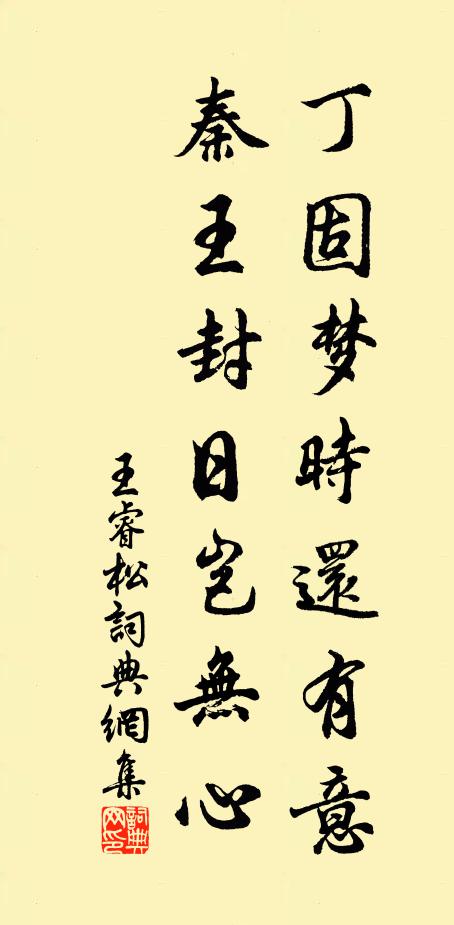 丁固梦時還有意
秦王封日豈無心
王睿松詞典網集
詞典网印